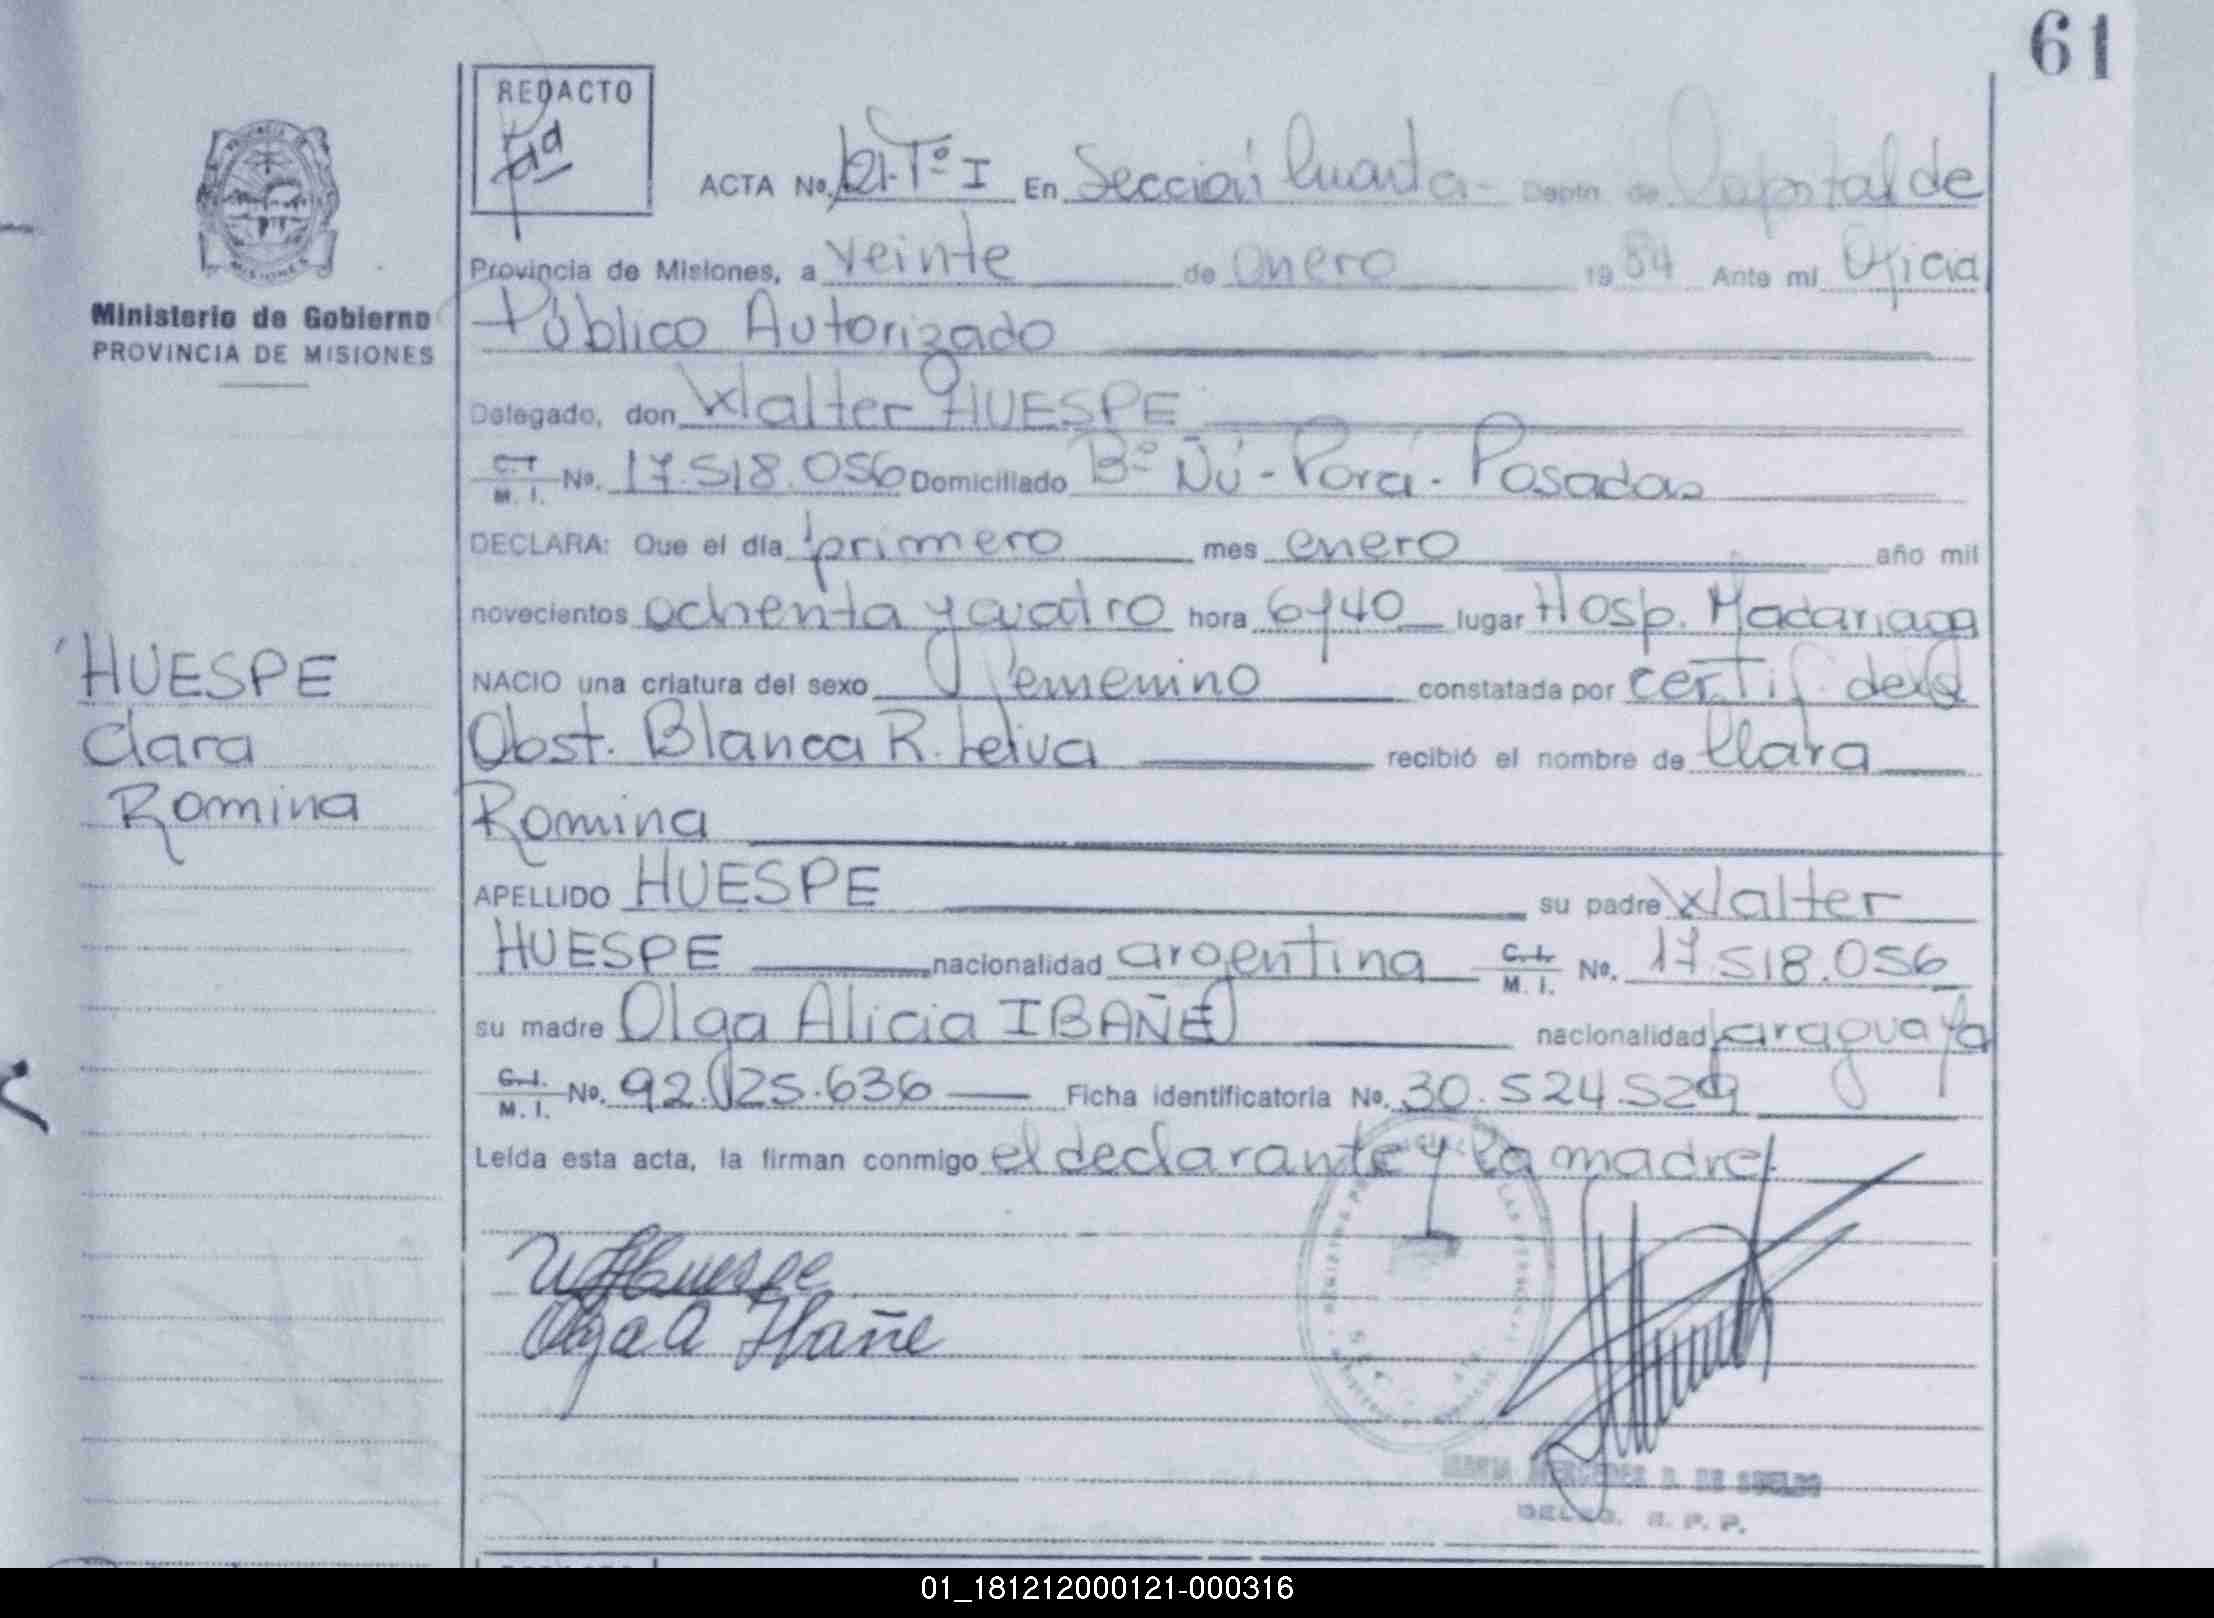 61
REDACTO
ACTA No. 121-Tº I En Sección Cuarta - Depto. de Capital de
Provincia de Misiones, a veinte de enero 1984 Ante mi Oficial
Público Autorizado
Ministerio de Gobierno
PROVINCIA DE MISIONES
Delegado, don Walter HUESPE
C.I. M. I. No. 17.518.056 Domiciliado Bº Ñú - Porá - Posadas
DECLARA: Que el día primero mes enero año mil
novecientos ochenta y cuatro hora 6y40 lugar Hosp. Madariaga
NACIO una criatura del sexo femenino constatada por certif. de la
Obst. Blanca R. Leiva recibió el nombre de Clara
Romina
HUESPE
Clara
Romina
APELLIDO HUESPE su padre Walter
HUESPE nacionalidad argentina C.I. M. I. No. 17.518.056
su madre Olga Alicia IBAÑE nacionalidad paraguaya
C.I. M. I. No. 92.025.636 Ficha identificatoria No. 30.524.529
Leída esta acta, la firman conmigo el declarante y la madre.
W Huespe
Olga A Ibañe
DELEG. R. P. P.
01_181212000121-000316